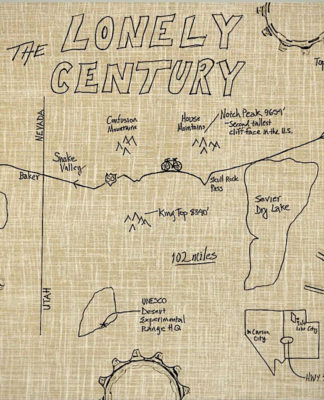 THE LONELY
CENTURY
To
NEVADA
Confusion
Mountains
House
Mountains
Notch Peak 9659'
-Second tallest
cliff face in the U.S.
Snake
Valley
Baker
Skull Rock
Pass
Sevier
Dry Lake
King Top 8390'
102 miles
UTAH
UNESCO
Desert
Experimental
Range HQ
Carson
City
Lake City
HWY